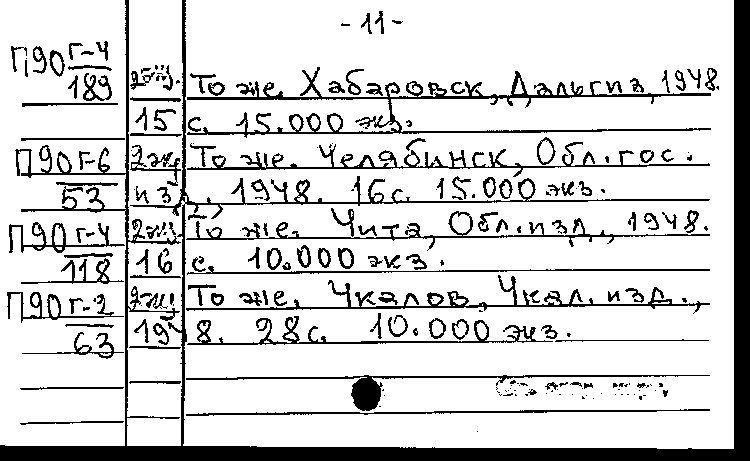 - 11 -
П90 Г-4 2экз. То же. Хабаровск, Дальгиз, 1948.
189 15 с. 15.000 экз.
П90 Г-6 2экз То же. Челябинск, Обл.гос.
53 изд., 1948. 16 с. 15.000 экз.
П90 Г-4 2экз. То же. Чита, Обл.изд., 1948.
118 16 с. 10.000 экз.
П90 Г-2 2экз То же. Чкалов, Чкал. изд.,
63 1948. 28 с. 10.000 экз.